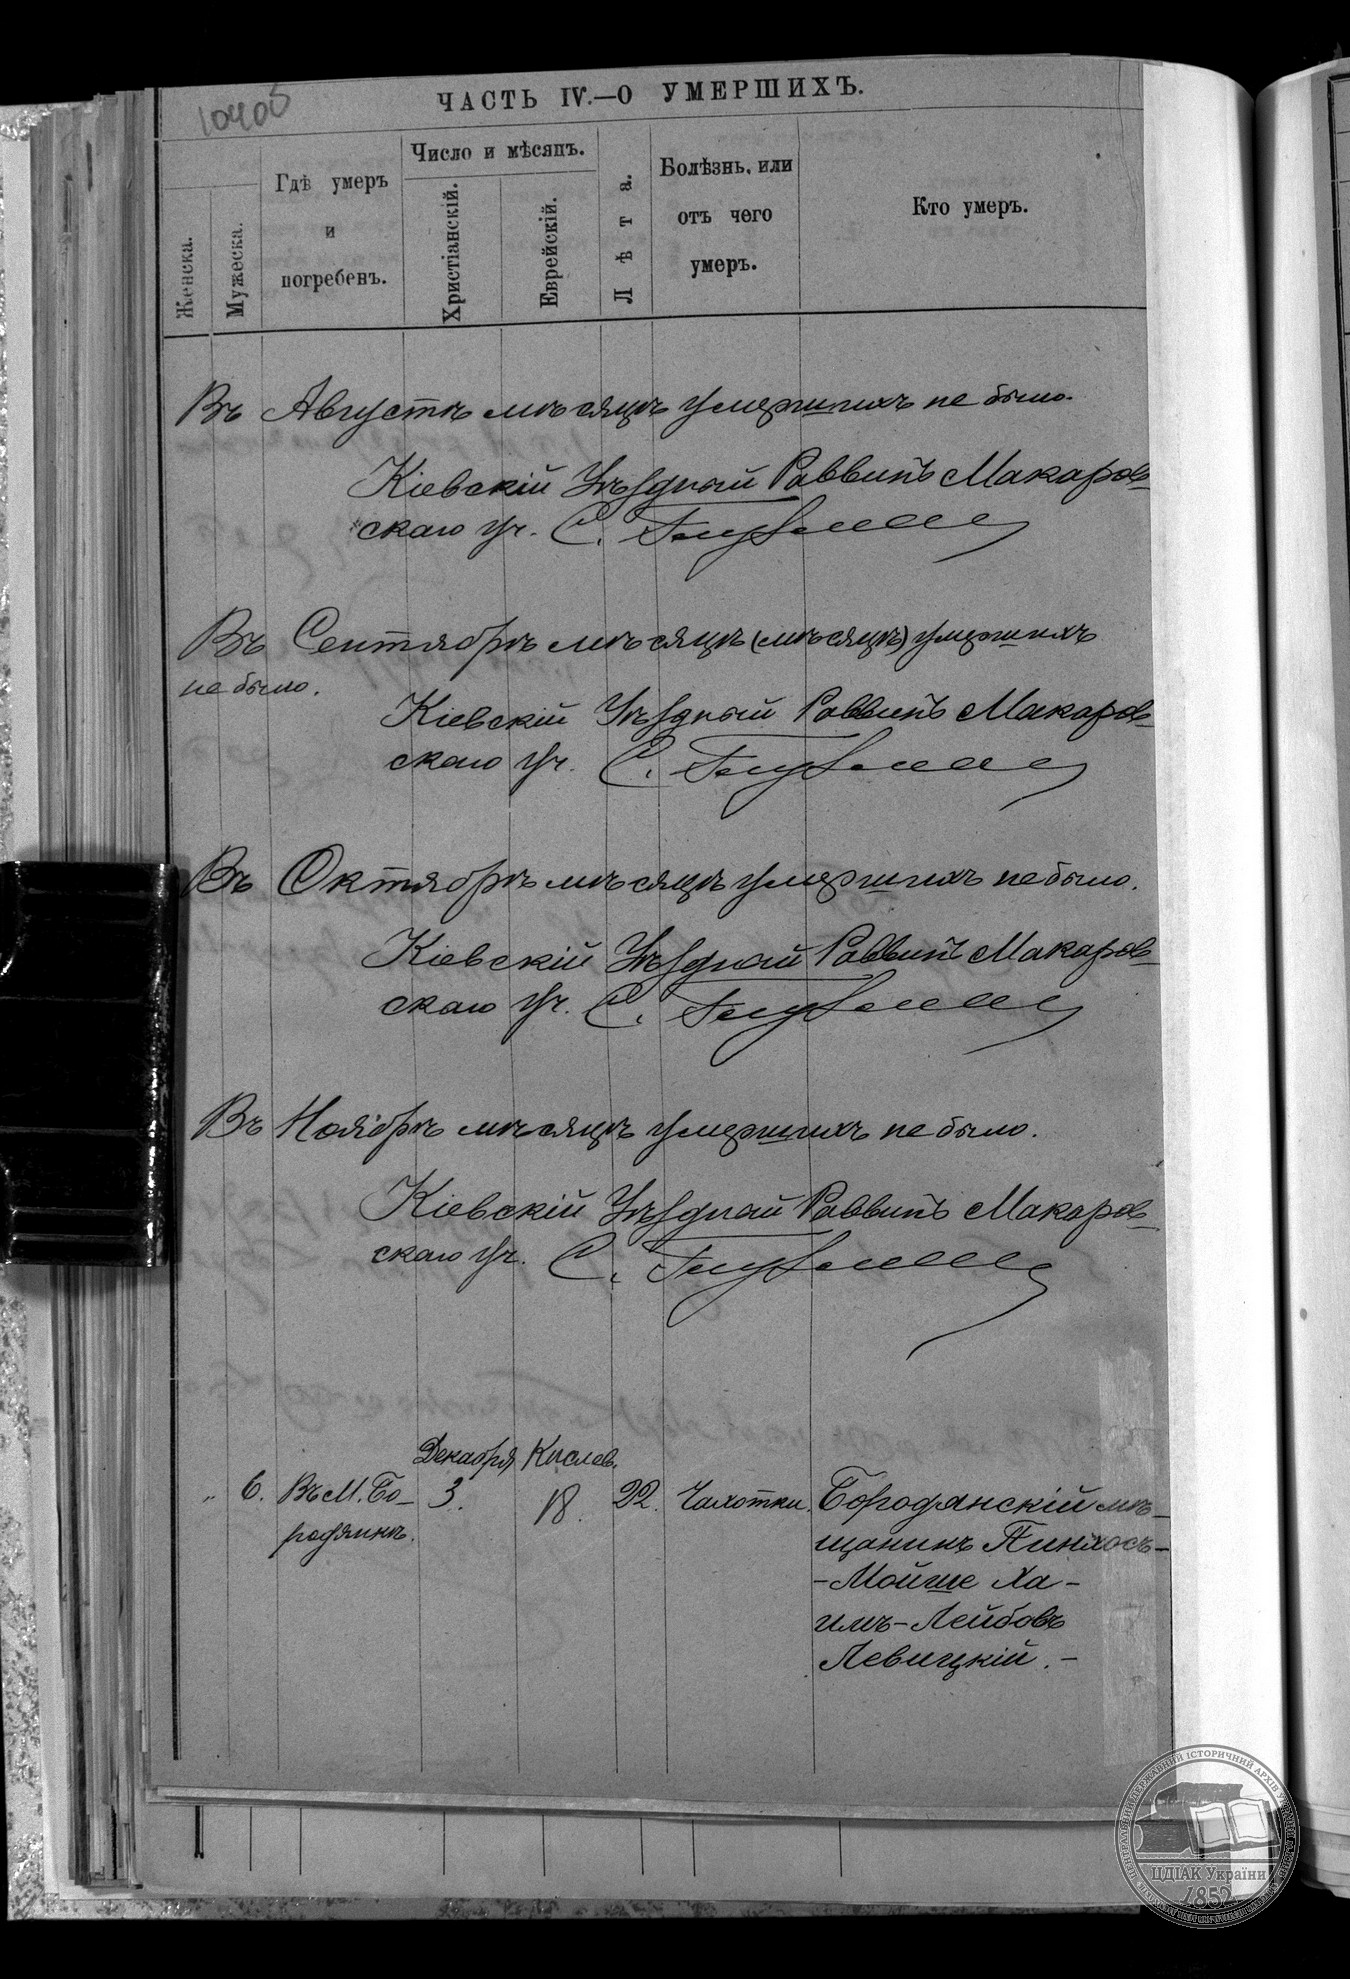 10405
ЧАСТЬ IV.—О УМЕРШИХЪ.
Женска.
Мужеска.
Гдѣ умеръ
и
погребенъ.
Число и мѣсяцъ.
Христіанскій.
Еврейскій.
Лѣта.
Болѣзнь, или
отъ чего
умеръ.
Кто умеръ.
Въ Августѣ мѣсяцѣ умершихъ не было.
Кіевскій Уѣздный Раввинъ Макаров-
скаго уч. С.
Въ Сентябрѣ мѣсяцѣ (мѣсяцѣ) умершихъ
не было.
Кіевскій Уѣздный Раввинъ Макаров-
скаго уч. С.
Въ Октябрѣ мѣсяцѣ умершихъ не было.
Кіевскій Уѣздный Раввинъ Макаров-
скаго уч. С.
Въ Ноябрѣ мѣсяцѣ умершихъ не было.
Кіевскій Уѣздный Раввинъ Макаров-
скаго уч. С.
Декабря Кислев.
„ 6. Въ М. Бо- 3. 18. 22. Чахотки. Бородянскій мѣ-
родянкѣ. щанинъ Пинхосъ-
-Мойше Ха-
имъ-Лейбовъ
Левицкій.-
ЦЕНТРАЛЬНИЙ ДЕРЖАВНИЙ ІСТОРИЧНИЙ АРХІВ УКРАЇНИ
ЦДІАК України
1852